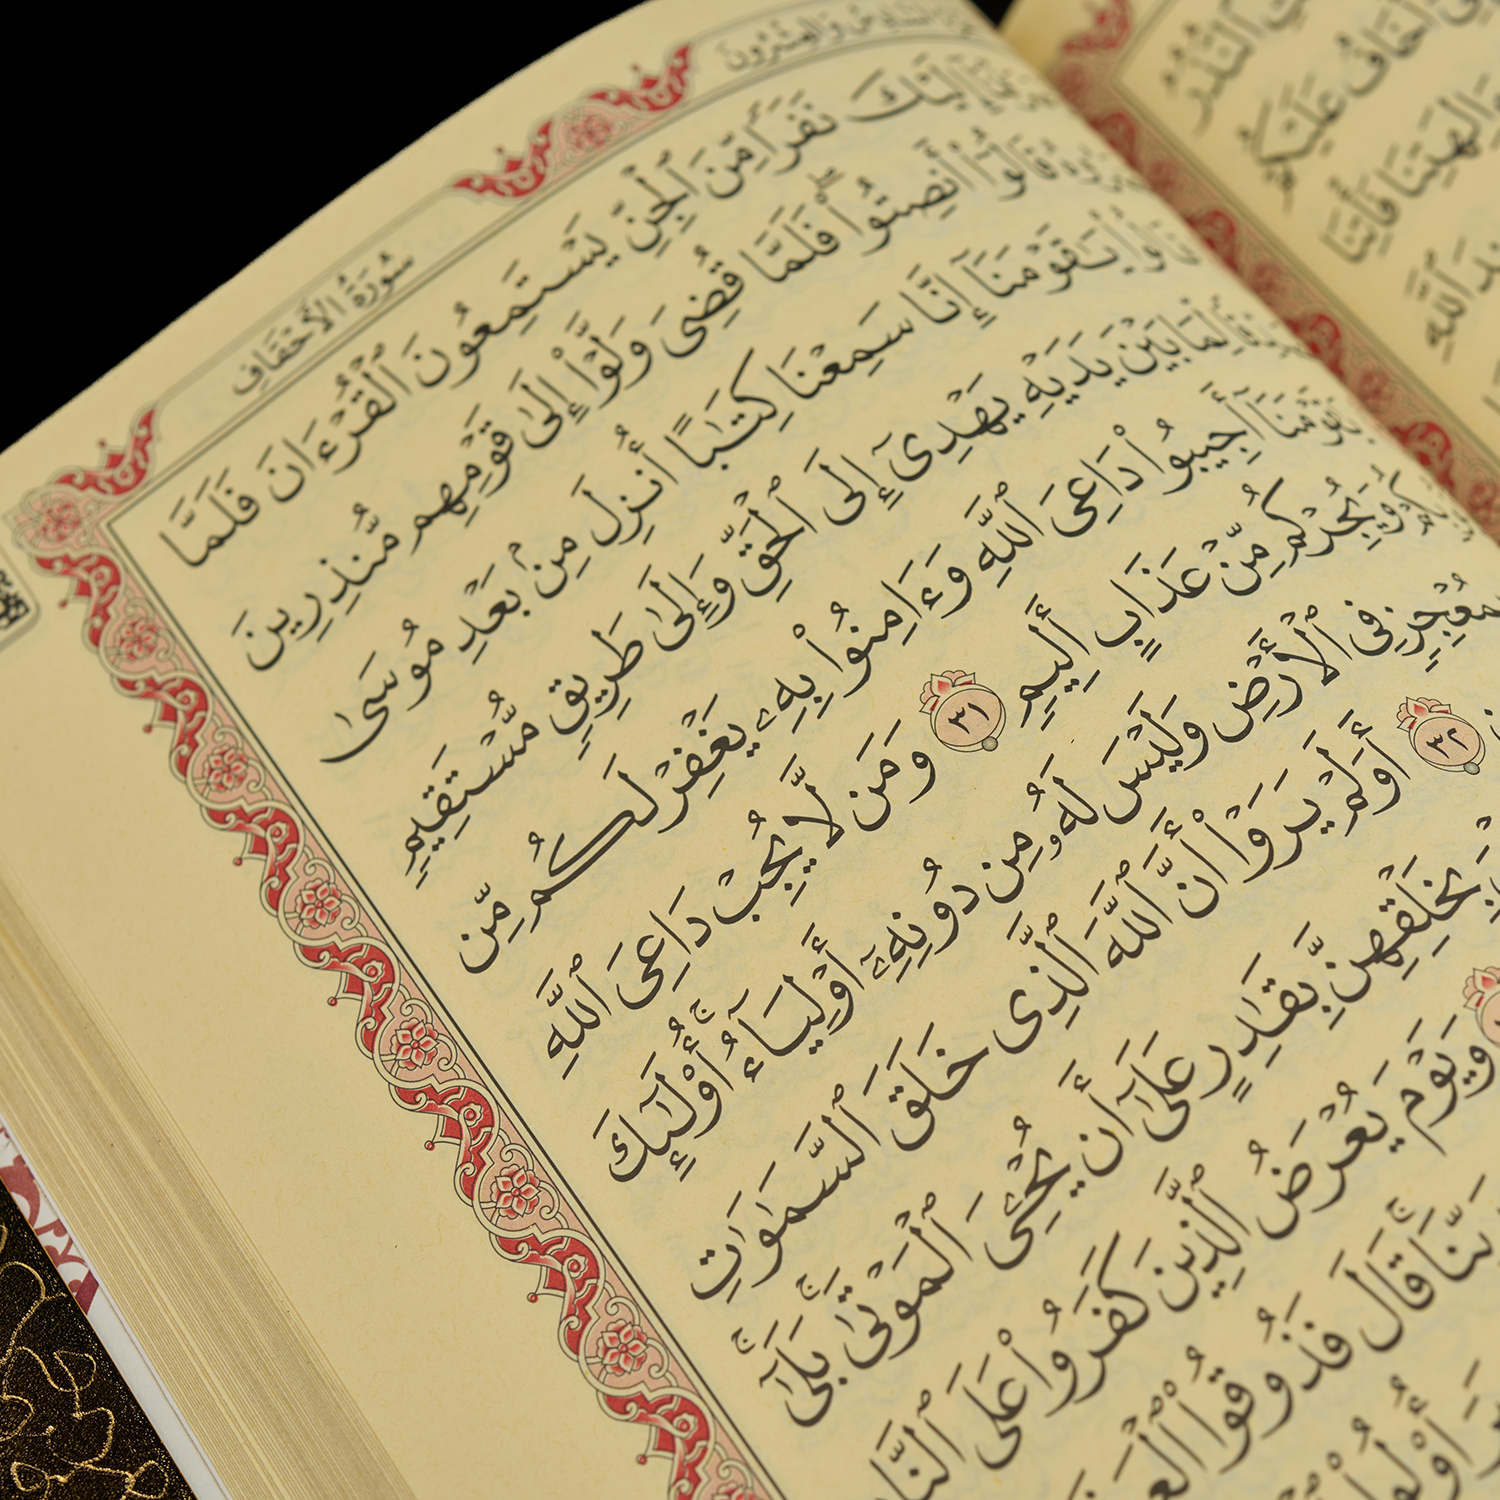 السَّادِسُ وَالْعِشْرُونَ
سُورَةُ الْأَحْقَافِ
إِلَيْكَ نَفَرًا مِّنَ ٱلْجِنِّ يَسْتَمِعُونَ ٱلْقُرْءَانَ فَلَمَّا
قَالُوٓا۟ أَنصِتُوا۟ ۖ فَلَمَّا قُضِىَ وَلَّوْا۟ إِلَىٰ قَوْمِهِم مُّنذِرِينَ
قَالُوا۟ يَـٰقَوْمَنَآ إِنَّا سَمِعْنَا كِتَـٰبًا أُنزِلَ مِنۢ بَعْدِ مُوسَىٰ
لِّمَا بَيْنَ يَدَيْهِ يَهْدِىٓ إِلَى ٱلْحَقِّ وَإِلَىٰ طَرِيقٍ مُّسْتَقِيمٍ
يَـٰقَوْمَنَآ أَجِيبُوا۟ دَاعِىَ ٱللَّهِ وَءَامِنُوا۟ بِهِۦ يَغْفِرْ لَكُم مِّن
وَيُجِرْكُم مِّنْ عَذَابٍ أَلِيمٍ ٣١ وَمَن لَّا يُجِبْ دَاعِىَ ٱللَّهِ
بِمُعْجِزٍ فِى ٱلْأَرْضِ وَلَيْسَ لَهُۥ مِن دُونِهِۦٓ أَوْلِيَآءُ ۚ أُو۟لَـٰٓئِكَ
٣٢ أَوَلَمْ يَرَوْا۟ أَنَّ ٱللَّهَ ٱلَّذِى خَلَقَ ٱلسَّمَـٰوَٰتِ
بِخَلْقِهِنَّ بِقَـٰدِرٍ عَلَىٰٓ أَن يُحْـِۧىَ ٱلْمَوْتَىٰ ۚ بَلَىٰٓ
وَيَوْمَ يُعْرَضُ ٱلَّذِينَ كَفَرُوا۟ عَلَى ٱلنَّا
رَبِّنَا ۚ قَالَ فَذُوقُوا۟ ٱلْعَذَ
أُو۟لُوا۟
ٱلنُّذُرُ
أَخَافُ عَلَيْكُمْ
ءَالِهَتِنَا فَأْتِنَا
عِندَ ٱللَّهِ